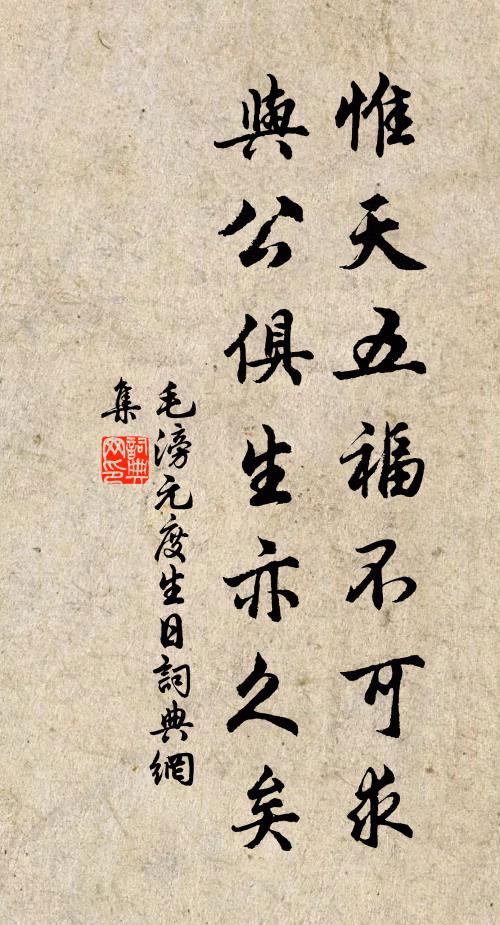 惟天五福不可求
與公俱生亦久矣
毛滂元度生日詞典網
集
詞典
网印